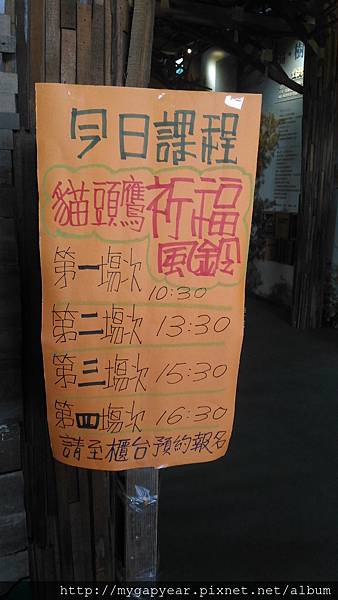 今日課程
貓頭鷹祈福
風鈴
第一場次
10:30
第二場次 13:30
第三場次 15:30
第四場次 16:30
請至櫃台預約報名
http://mygapyear.pixnet.net/album